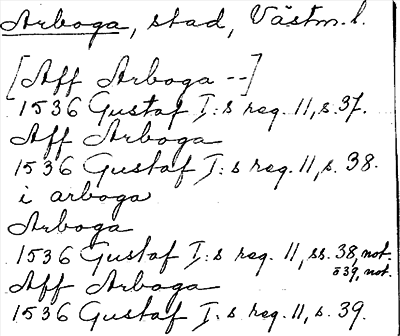 Arboga, stad, Västm.l.
[Aff Arboga --]
1536 Gustaf I:s reg. 11, s. 37.
Aff Arboga
1536 Gustaf I:s reg. 11, s. 38.
i arboga
Arboga
1536 Gustaf I:s reg. 11, ss. 38, not.
o 39, not.
Aff Arboga
1536 Gustaf I:s reg. 11, s. 39.